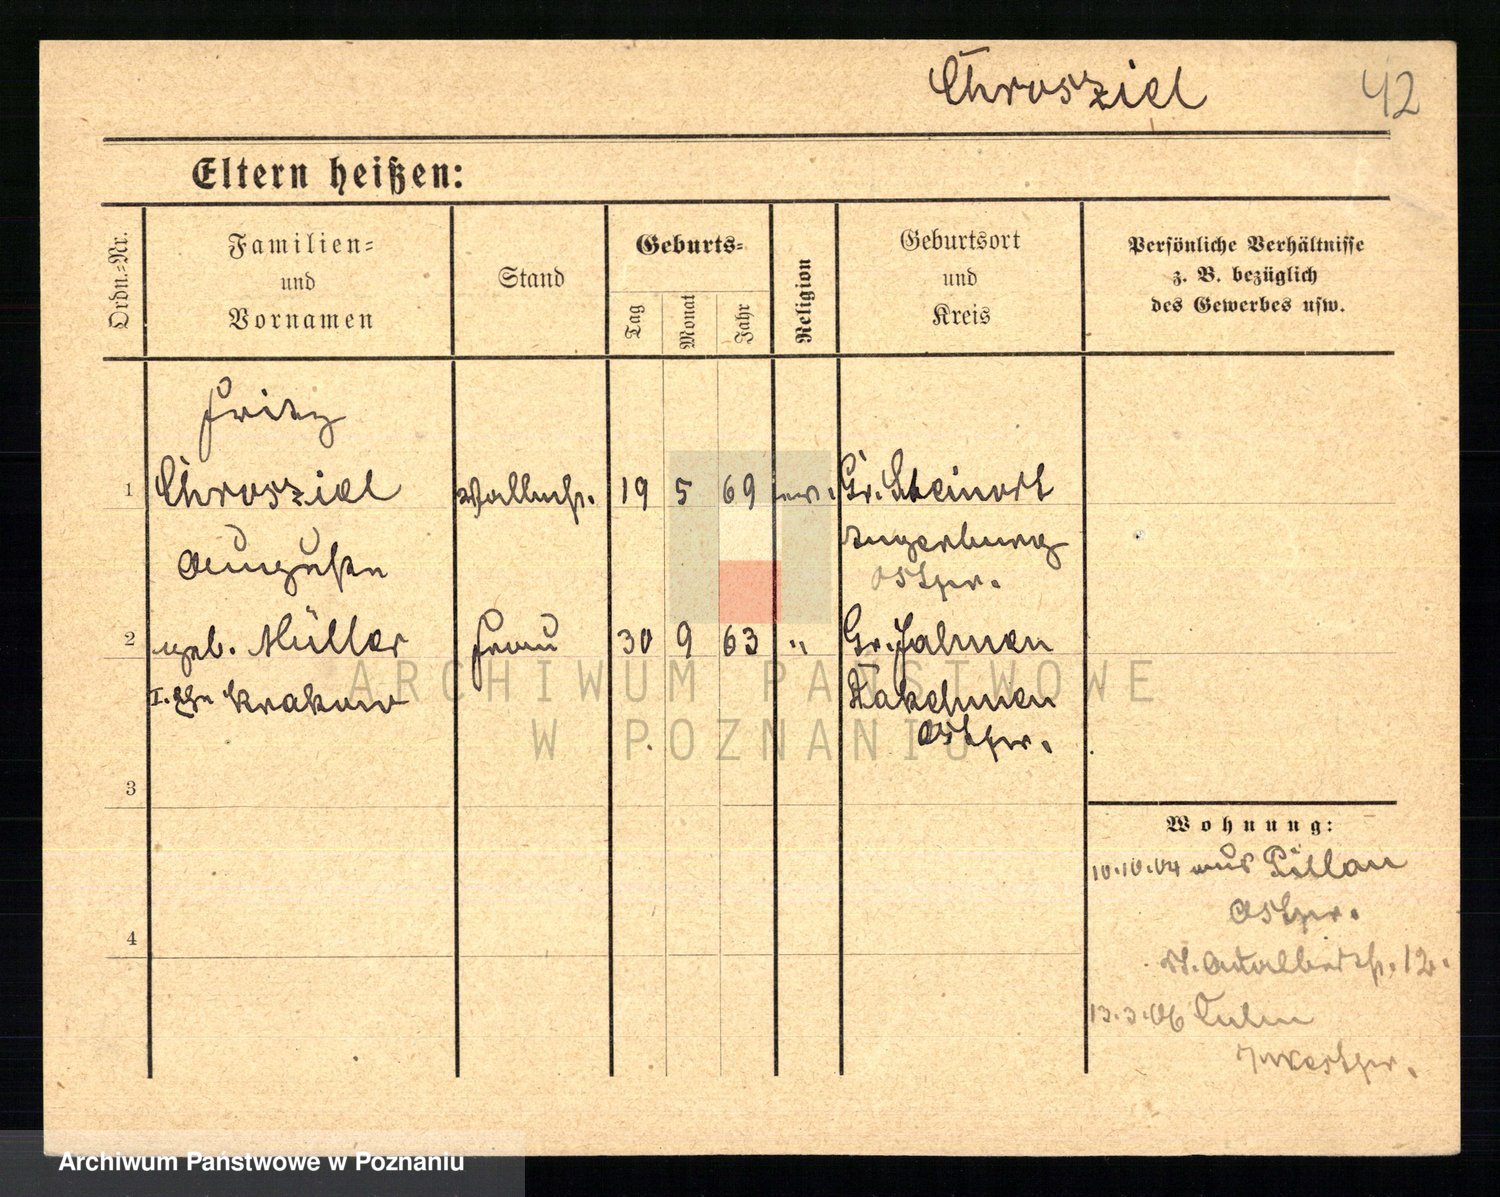 Chrosziel 42
Eltern heißen:
Ordn.-Nr.
Familien-
und
Vornamen
Stand
Geburts-
Tag
Monat
Jahr
Religion
Geburtsort
und
Kreis
Persönliche Verhältnisse
z. B. bezüglich
des Gewerbes usw.
Fritz
1 Chrosziel 19 5 69 ev. Gr. Steinort
Angerburg
Ostpr.
Auguste
2 geb. Müller Frau 30 9 63 " Gr.
I. Ehe Krakow
Ostpr.
3
4
Wohnung:
10.10.04 aus Pillau
Ostpr.
St. Adalbertstr. 12.
13.3.06 Culm
Westpr.
ARCHIWUM PAŃSTWOWE
W POZNANIU
Archiwum Państwowe w Poznaniu